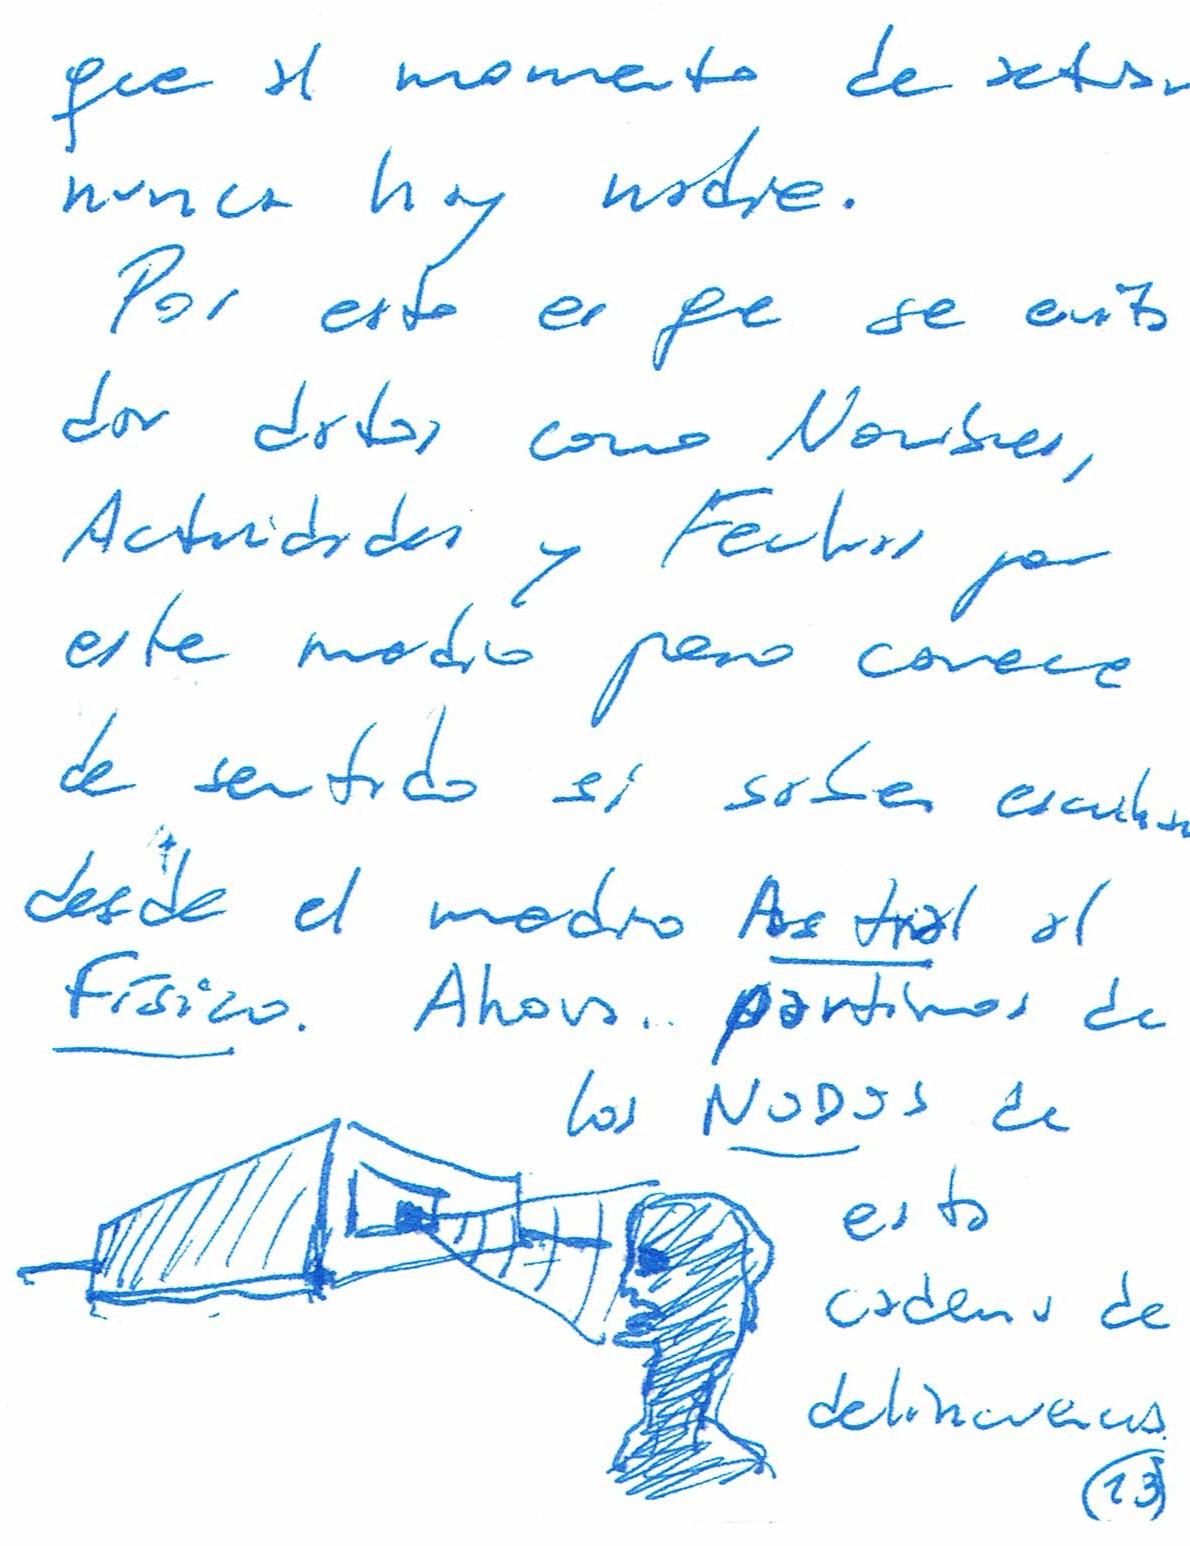 que al momento de actuar
nunca hay nadie.
Por esto es que se evita
dar datos como Nombres,
Actividades y Fechas por
este medio pero carece
de sentido si sabes escuchar
desde el medio Astral al
Físico. Ahora.. partimos de
los NODOS de
esta
cadena de
delincuencia
(13)